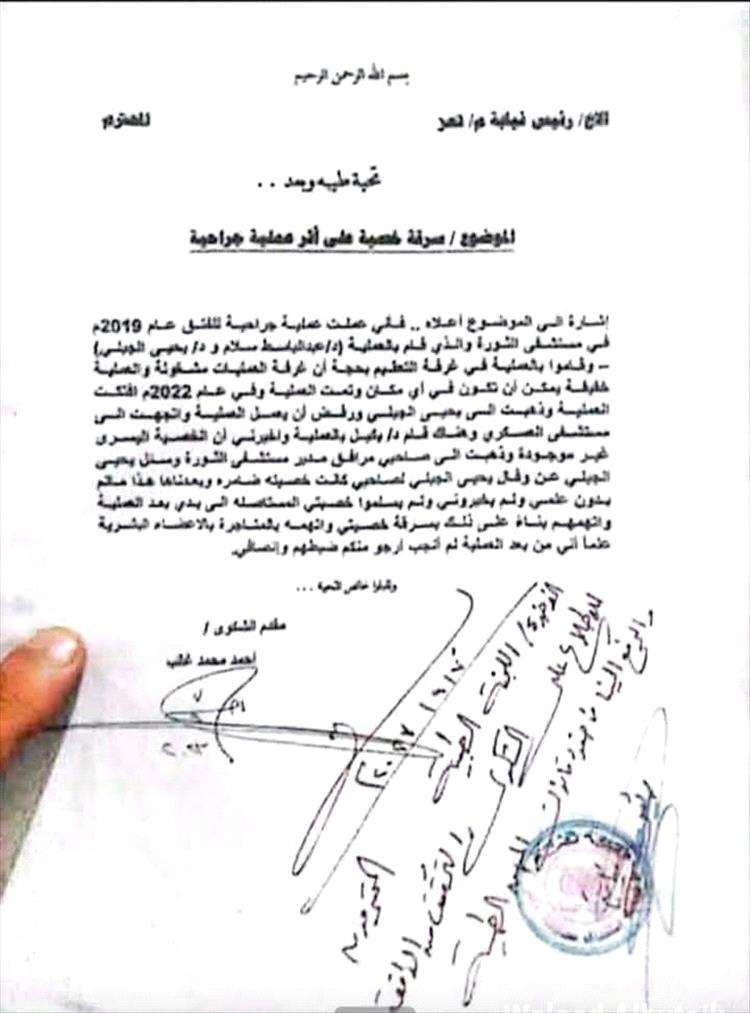 بسم الله الرحمن الرحيم
الاخ/ رئيس نيابة م/ تعز المحترم
تحية طيبه وبعد ..
الموضوع / سرقة خصية على أثر عملية جراحية
إشارة الى الموضوع أعلاه .. فأني عملت عملية جراحية للفتق عام 2019م
في مستشفى الثورة والذي قام بالعملية (د/عبدالباسط سلام و د/ يحيى الجبلي)
– وقاموا بالعملية في غرفة التعقيم بحجة أن غرفة العمليات مشغولة والعملية
خفيفة يمكن أن تكون في أي مكان وتمت العملية وفي عام 2022م افتكت
العملية وذهبت الى يحيى الجبلي ورفض أن يعمل العملية واتجهت الى
مستشفى العسكري وهناك قام د/ بكيل بالعملية واخبرني أن الخصية اليسرى
غير موجودة وذهبت الى صاحبي مرافق مدير مستشفى الثورة وسئل يحيى
الجبلي عن وقال يحيى الجبلي لصاحبي كانت خصيته ضامره وبعدناها هذا مالم
بدون علمي ولم يخبروني ولم يسلموا خصيتي المستاصله الى يدي بعد العملية
واتهمهم بناءً على ذلك بسرقة خصيتي واتهمه بالمتاجرة بالاعضاء البشرية
علماً أني من بعد العملية لم أنجب أرجو منكم ضبطهم وإنصافي.
وتقبلوا خالص التحيه ...
مقدم الشكوى /
احمد محمد غالب
الاخوة/ اللجنة الطبية
للاطلاع على الشكوى